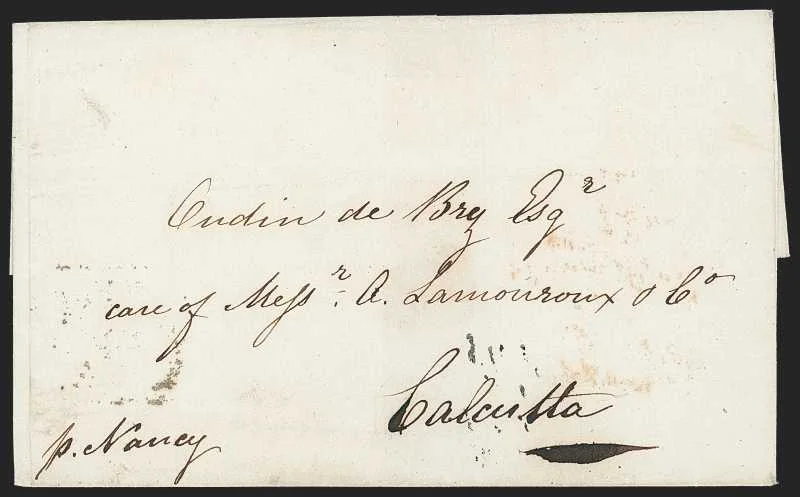 Oudin de Bry Esqr
care of Messr. A. Lamouroux & Co
Calcutta
p. Nancy